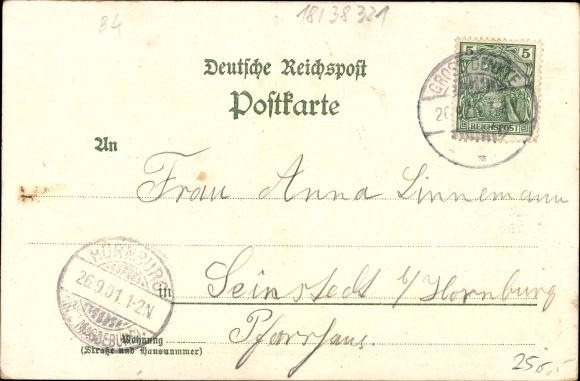 84
18/38321
Deutsche Reichspost
Postkarte
5 5
REICHSPOST
GROSS DENKTE
26
An
Frau Anna Linnemann
HORNBURG
26.9.01. 1-2N.
in Seinstedt b/Hornburg
Pfarrhaus.
Wohnung
(Straße und Hausnummer)
250,-